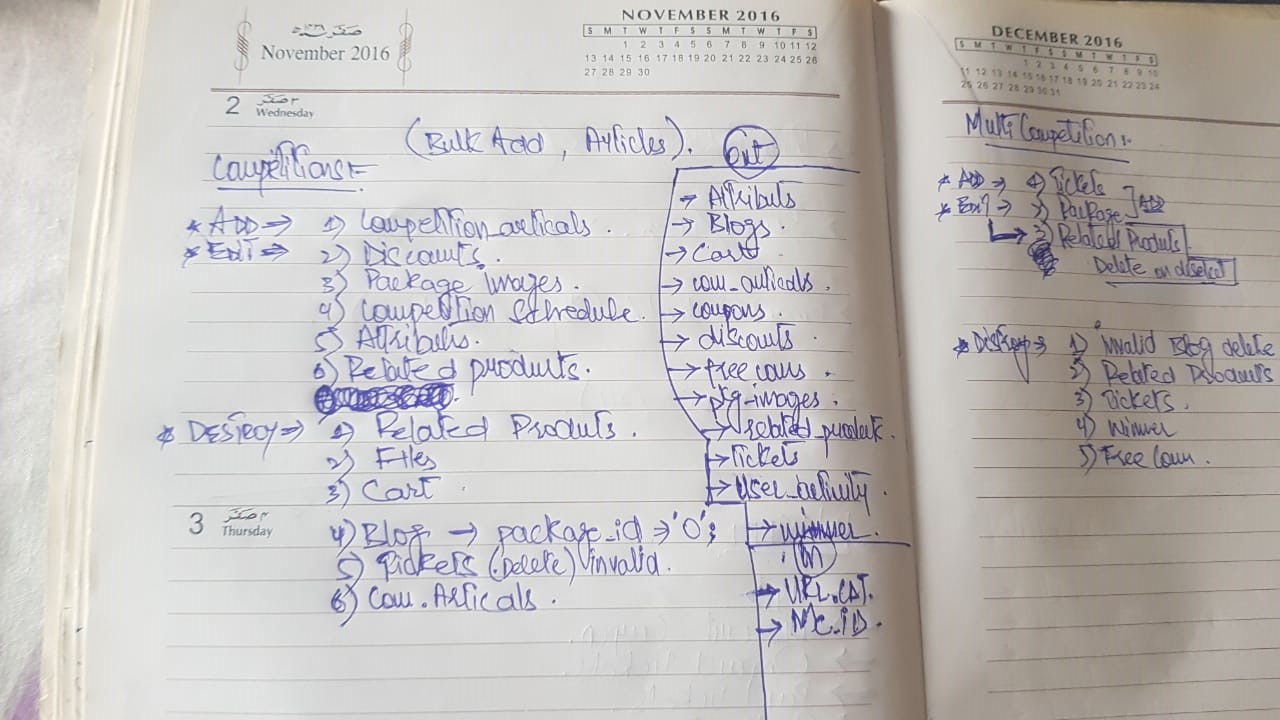 صفر ١٤٣٨
November 2016
NOVEMBER 2016
S M T W T F S S M T W T F S
1 2 3 4 5 6 7 8 9 10 11 12
13 14 15 16 17 18 19 20 21 22 23 24 25 26
27 28 29 30
2 صفر
Wednesday
(Bulk Add, Articles).
Competitions:-
* ADD → 1) Competition_articals.
* EDIT → 2) Discounts.
3) Package Images.
4) Competition Schedule.
5) Attributs.
6) Related products.
* DESTROY → 1) Related Produts.
2) Files
3) Cart
3 صفر
Thursday
4) Blog → package_id → '0';
5) Tickets (Delete) invalid.
6) Com. Articals.
Out
→ Attributs
→ Blogs.
→ Cart
→ com_articals.
→ coupons.
→ discouts
→ free coms.
→ pkg-images.
→ related_product.
→ Tickets
→ User_activity.
→ winner.
In
→ URL.CAT.
→ Mc.ID.
DECEMBER 2016
S M T W T F S S M T W T F S
1 2 3 4 5 6 7 8 9 10
11 12 13 14 15 16 17 18 19 20 21 22 23 24
25 26 27 28 29 30 31
Multi Competition:-
* ADD → 1) Tickets
* EDIT → 2) Package ADD
3) Related Produts
Delete on deselect
* Destroy → 1) invalid Blog delete
2) Related Products
3) Tickets.
4) Winner
5) Free Com.